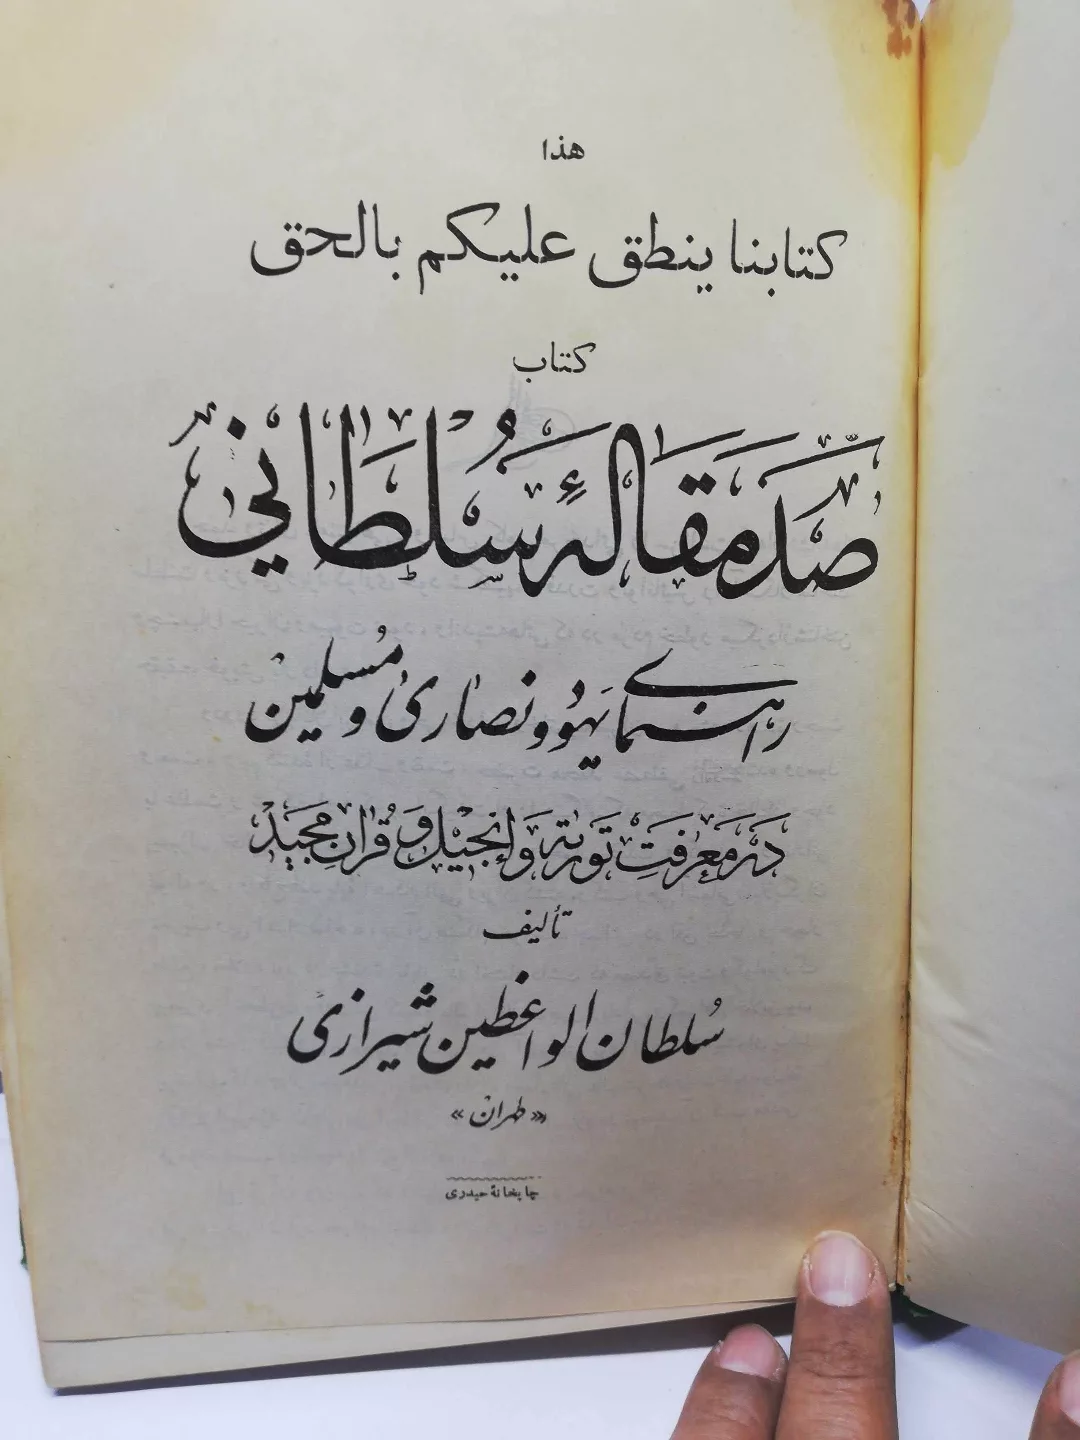 هذا
كتابنا ينطق عليكم بالحق
كتاب
صَد مَقالهٔ سُلطاني
راهنمای یهود و نصاری و مسلمین
در معرفت توریة و انجیل و قرآن مجید
تألیف
سلطان الواعظین شیرازی
«طهران»
چاپخانهٔ حیدری